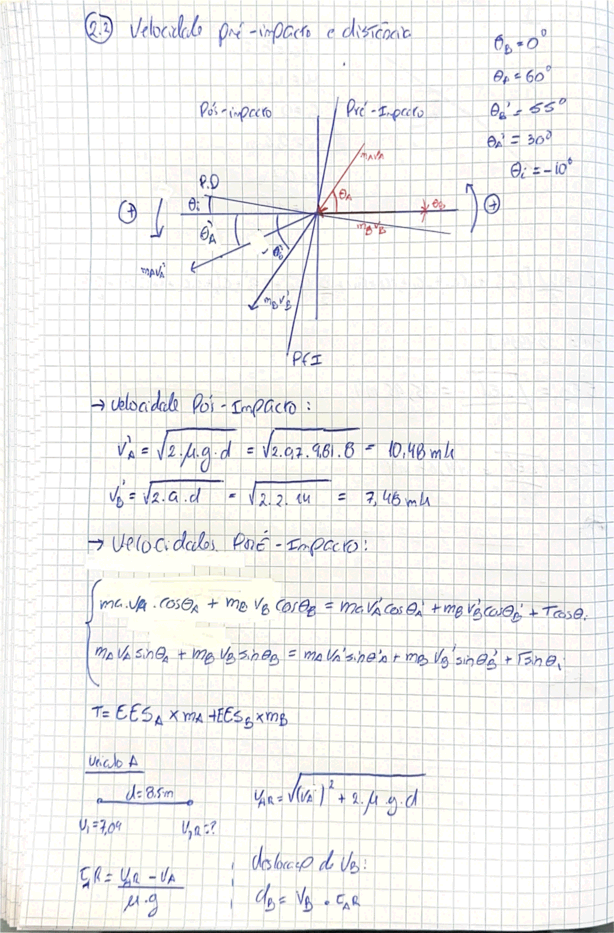 2.2 Velocidade pré-impacto e distância
θB = 0°
θA = 60°
θB' = 55°
θA' = 30°
θi = -10°
Pós-impacto
Pré-Impacto
mAVA
P.D
θi
θA
θB
+
+
θA'
θB'
mBVB
mAVA'
mBVB'
PfI
→ Velocidade Pós-Impacto:
VA' = √2.μ.g.d = √2.0,7.9,81.8 = 10,48 m/s
VB' = √2.a.d = √2.2.14 = 7,48 m/s
→ Velocidades Pré-Impacto:
mA.VA.cosθA + mB VB cosθB = mAVA'cosθA' + mBVB'cosθB' + Tcosθi
mAVA sinθA + mB VB sinθB = mAVA'sinθ'A + mB VB'sinθB' + Tsinθi
T = EESA × mA + EESB × mB
Veículo A
d = 8.5m
V1 = 7,04
VAR = ?
VAR = √(VA)² + 2.μ.g.d
tAR = VAR - VA / μ.g
deslocação de VB:
dB = VB . tAR